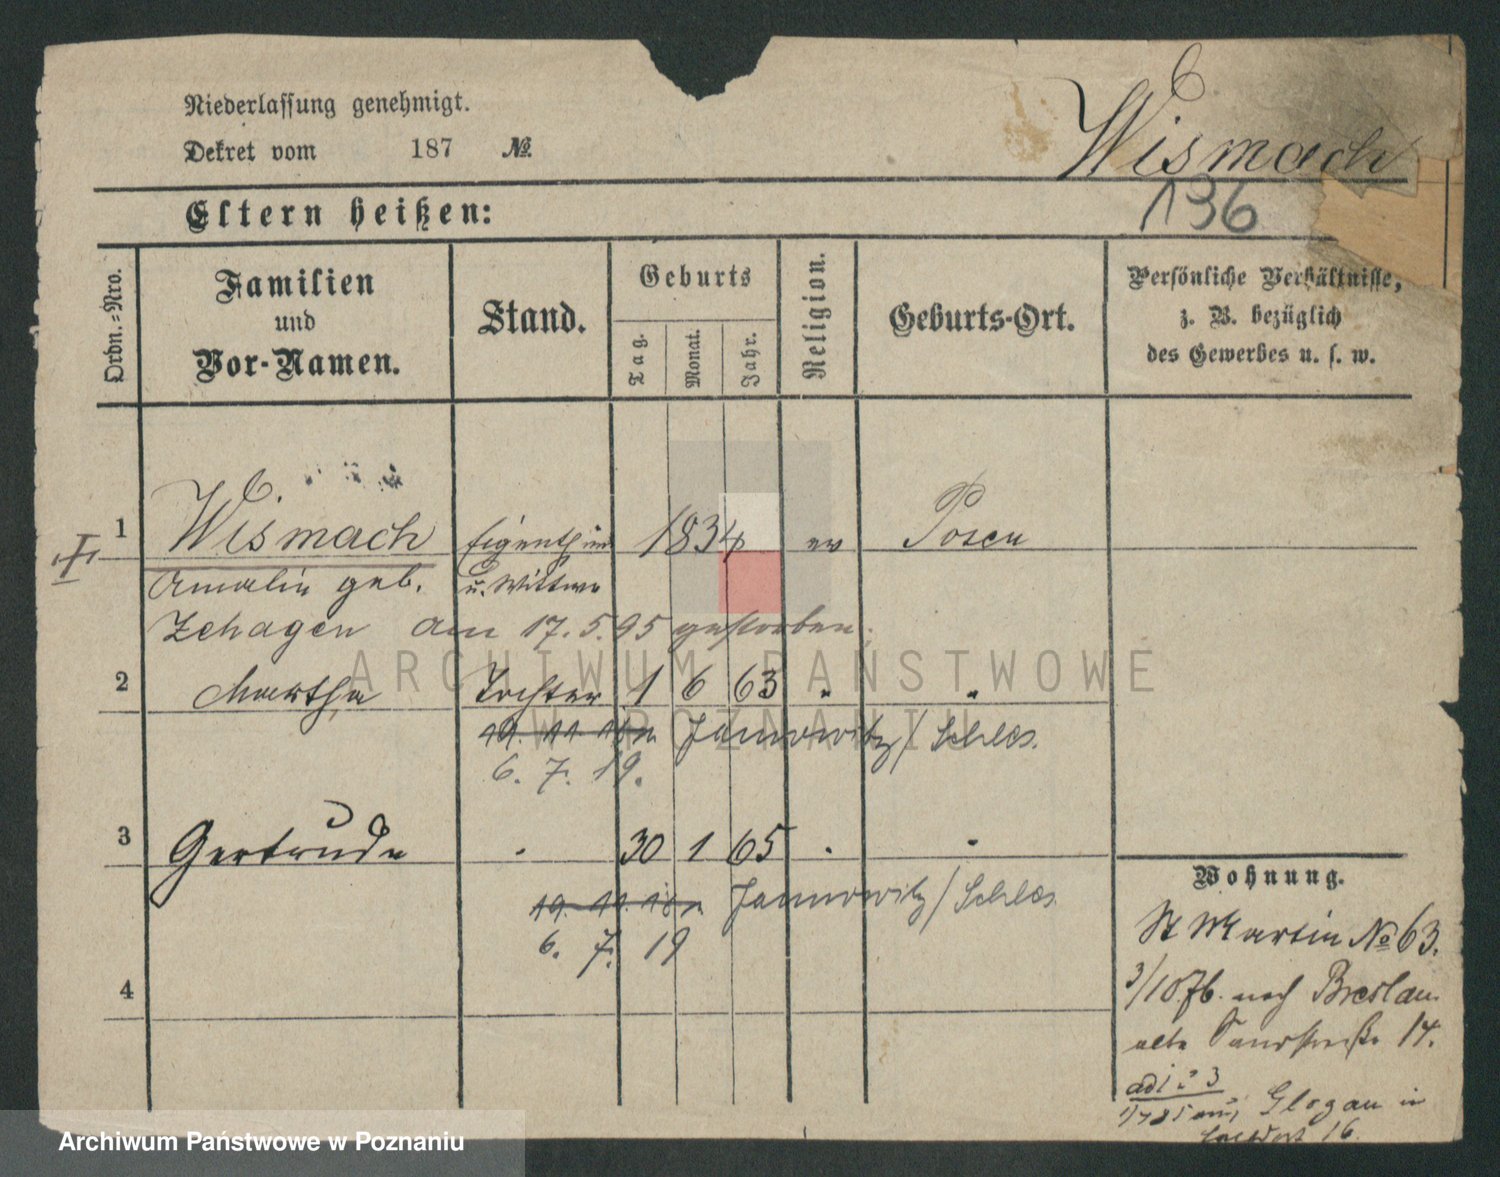 Niederlassung genehmigt.
Dekret vom 187 №.
Wismach
136
Eltern heißen:
Ordn.-Nro.
Familien
und
Vor-Namen.
Stand.
Geburts
Tag.
Monat.
Jahr.
Religion.
Geburts-Ort.
Persönliche Verhältnisse,
z. B. bezüglich
des Gewerbes u. s. w.
1 Wismach 1834 ev Posen
Amalie geb. u. Wittwe
Zehagen am 17. 5. 95 gestorben.
2 Martha Tochter 1 6 63 " "
19. 11. 18 n Janowitz / Schles.
6. 7. 19.
3 Gertrude " 30 1 65 " "
19. 11. 18 n Janowitz / Schles.
6. 7. 19
4
Wohnung.
St Martin № 63.
3/10.76. nach Breslau
alte 14.
ad 1 2 3
Glogau in
16.
ARCHIWUM PAŃSTWOWE
W POZNANIU
Archiwum Państwowe w Poznaniu